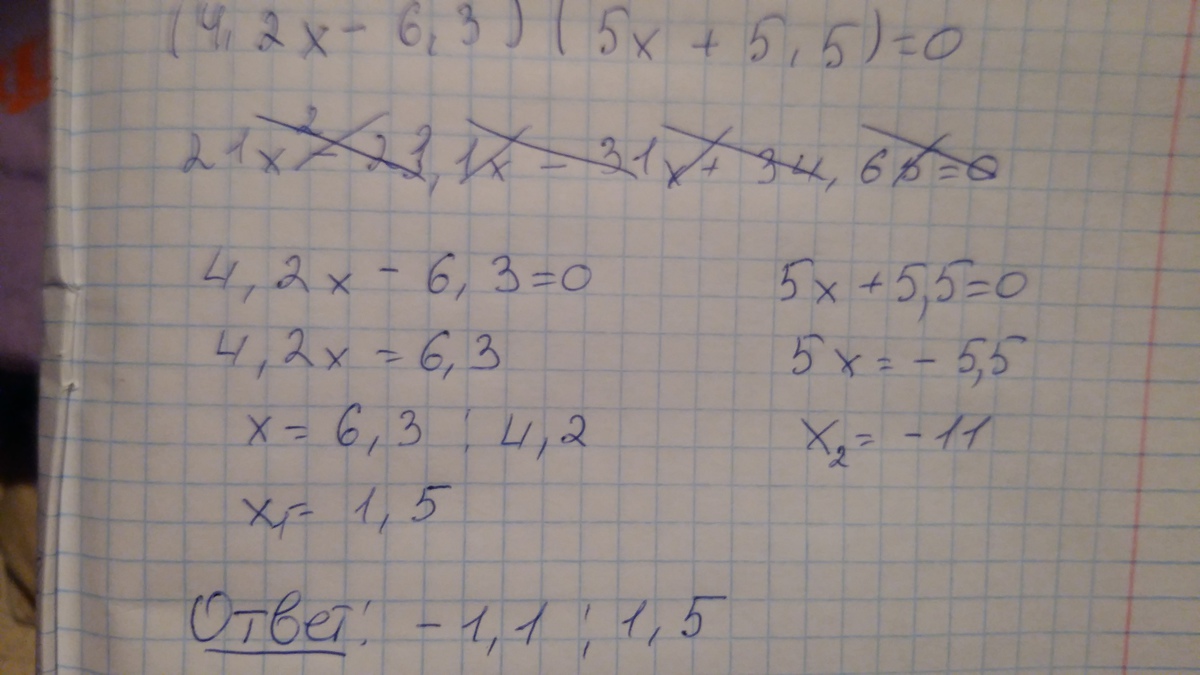 (4,2x - 6,3)(5x + 5,5) = 0
21x² - 23,1x - 31x + 34,65 = 0
4,2x - 6,3 = 0
4,2x = 6,3
x = 6,3 : 4,2
x₁ = 1,5
5x + 5,5 = 0
5x = - 5,5
x₂ = -11
Ответ: -1,1 ; 1,5